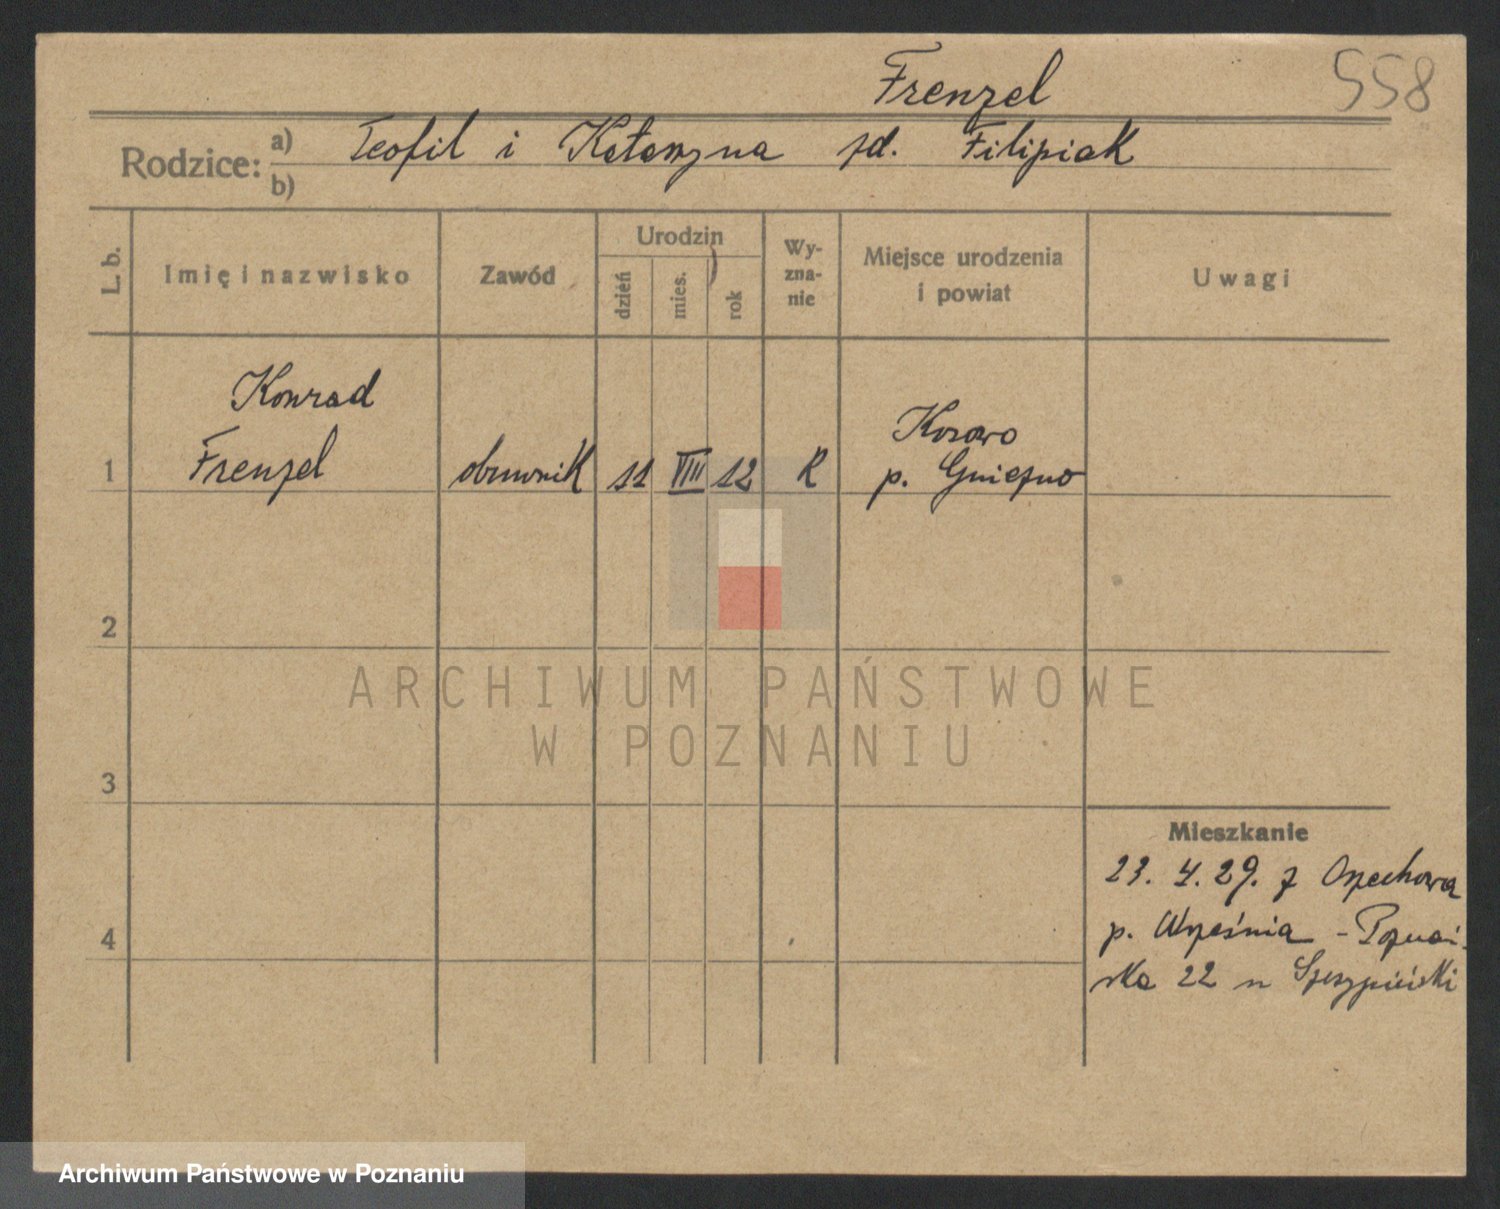 Frenzel
558
Rodzice: a) Teofil i Katarzyna zd. Filipiak
b)
L. b.
Imię i nazwisko
Zawód
Urodzin
dzień
mies.
rok
Wy-
zna-
nie
Miejsce urodzenia
i powiat
Uwagi
Konrad
Kozowo
1 Frenzel obuwnik 11 VIII 12 R p. Gniezno
2
3
4
Mieszkanie
23. 4. 29. z Orzechowa
p. Września - Poznań-
ska 22 u
ARCHIWUM PAŃSTWOWE
W POZNANIU
Archiwum Państwowe w Poznaniu